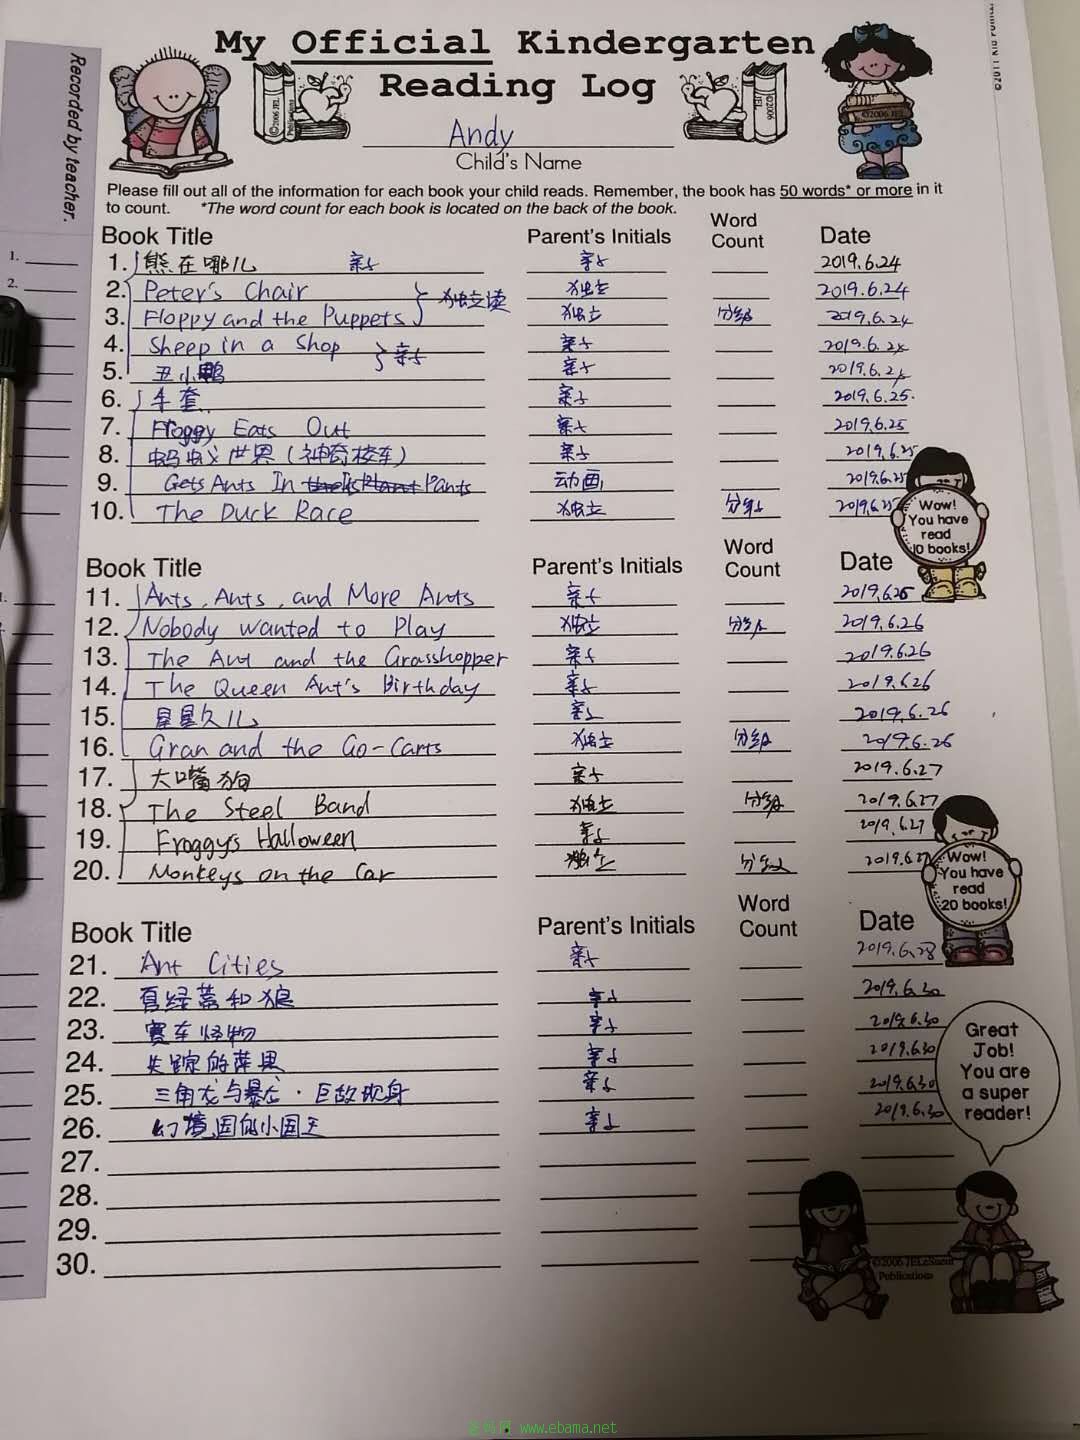 My Official Kindergarten
Reading Log
Recorded by teacher.
©2006 JEL Publications
©2006 JEL
©2006 JEL
Andy
Child's Name
Please fill out all of the information for each book your child reads. Remember, the book has 50 words* or more in it
to count. *The word count for each book is located on the back of the book.
Book Title Parent's Initials Word Count Date
1. 熊在哪儿 亲子 亲子 2019.6.24
2. Peter's Chair 独立读 独立 2019.6.24
3. Floppy and the Puppets 独立 分级 2019.6.24
4. Sheep in a Shop 亲子 亲子 2019.6.24
5. 丑小鸭 亲子 2019.6.24
6. 手套 亲子 2019.6.25.
7. Froggy Eats Out 亲子 2019.6.25
8. 蚂蚁世界（神奇校车） 亲子 2019.6.25
9. Gets Ants In Its Pants 动画 2019.6.25
10. The Duck Race 独立 分级 2019.6.25
Wow!
You have
read
10 books!
Book Title Parent's Initials Word Count Date
11. Ants, Ants, and More Ants 亲子 2019.6.26
12. Nobody Wanted to Play 独立 分级 2019.6.26
13. The Ant and the Grasshopper 亲子 2019.6.26
14. The Queen Ant's Birthday 亲子 2019.6.26
15. 星星久儿 亲子 2019.6.26
16. Gran and the Go-Carts 独立 分级 2019.6.26
17. 大嘴狗 亲子 2019.6.27
18. The Steel Band 独立 分级 2019.6.27
19. Froggy's Halloween 亲子 2019.6.27
20. Monkeys on the Car 独立 分级 2019.6.27
Wow!
You have
read
20 books!
Book Title Parent's Initials Word Count Date
21. Ant Cities 亲子 2019.6.28
22. 和狼 亲子 2019.6.30
23. 赛车怪物 亲子 2019.6.30
24. 失踪的苹果 亲子 2019.6.30
25. 三角龙与暴龙·巨敌现身 亲子 2019.6.30
26. 幻境国的小国王 亲子 2019.6.30
27.
28.
29.
30.
Great
Job!
You are
a super
reader!
Publications
www.ebama.net